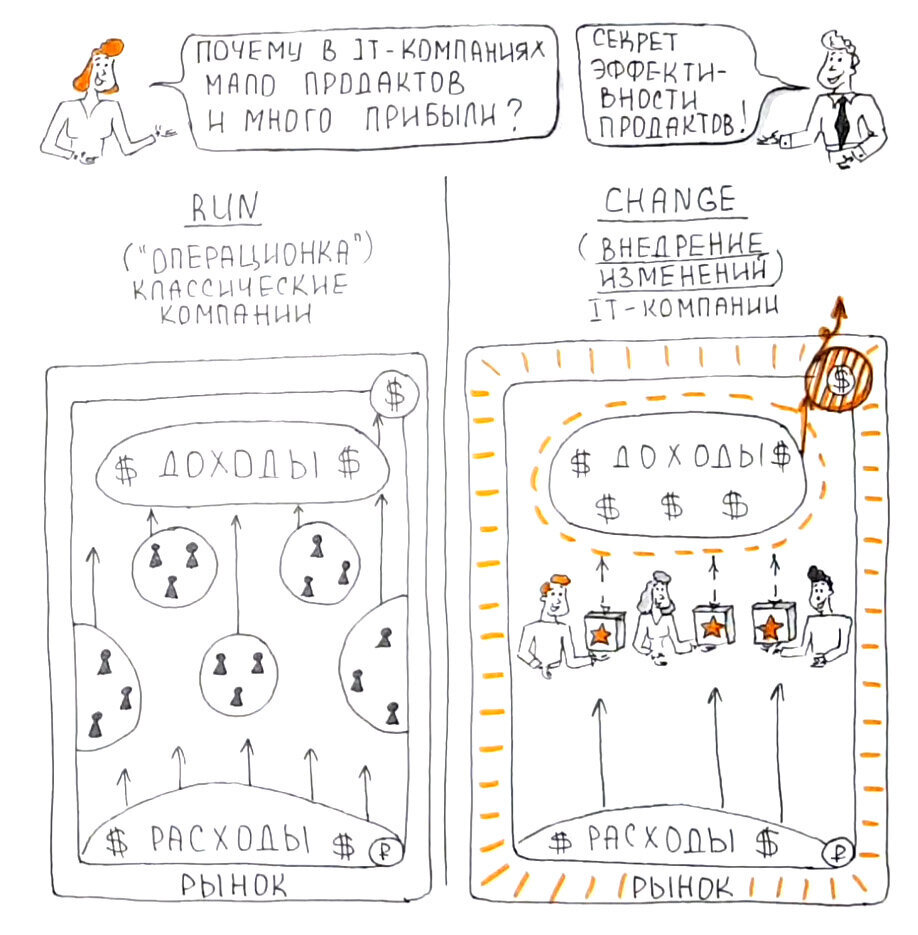 ПОЧЕМУ В IT-КОМПАНИЯХ
МАЛО ПРОДАКТОВ
И МНОГО ПРИБЫЛИ?
СЕКРЕТ
ЭФФЕКТИ-
ВНОСТИ
ПРОДАКТОВ!
RUN
("ОПЕРАЦИОНКА")
КЛАССИЧЕСКИЕ
КОМПАНИИ
$
$ ДОХОДЫ $
$ РАСХОДЫ $ ₽
РЫНОК
CHANGE
(ВНЕДРЕНИЕ
ИЗМЕНЕНИЙ)
IT-КОМПАНИИ
$
$ ДОХОДЫ $
$ $ $
$ РАСХОДЫ $ ₽
РЫНОК